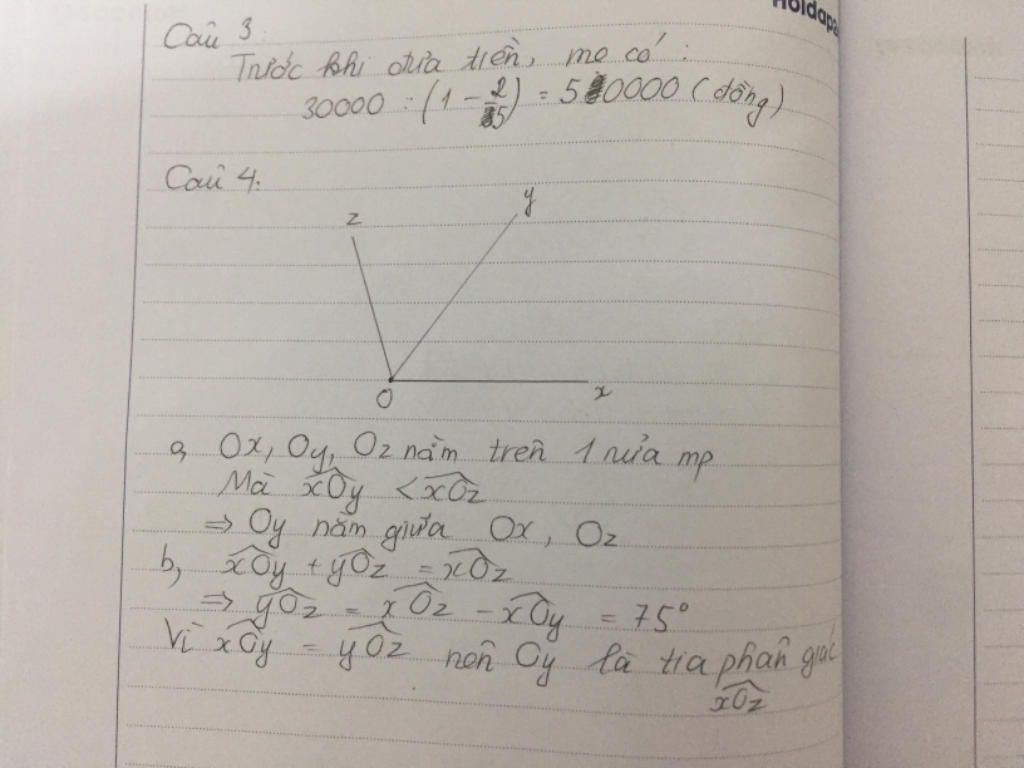 Holdapa
Câu 3:
Trước khi đưa tiền, mẹ có :
30000 : (1 - 2/5) = 50000 (đồng)
Câu 4:
z
y
O
x
a, Ox, Oy, Oz nằm trên 1 nửa mp
Mà xOy < xOz
⇒ Oy nằm giữa Ox, Oz
b, xOy + yOz = xOz
⇒ yOz = xOz - xOy = 75°
Vì xOy = yOz nên Oy là tia phân giác
xOz